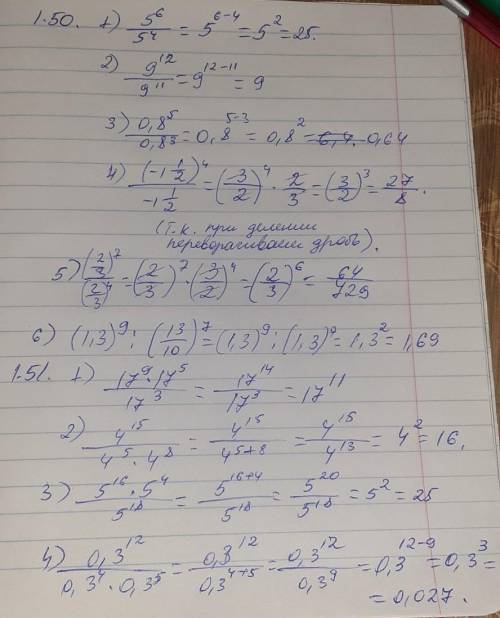 1.50. 1) 5⁶/5⁴ = 5⁶⁻⁴ = 5² = 25.
2) 9¹²/9¹¹ = 9¹²⁻¹¹ = 9
3) 0,8⁵/0,8³ = 0,8⁵⁻³ = 0,8² = 0,64
4) (-1 1/2)⁴/-1 1/2 = (-3/2)⁴ · 2/3 = (3/2)³ = 27/8.
(Т.к. при делении
переворачиваем дробь).
5) (2/3)⁷/(2/3)⁴ = (2/3)⁷ · (3/2)⁴ = (2/3)⁶ = 64/729
6) (1,3)⁹ : (13/10)⁷ = (1,3)⁹ : (1,3)⁷ = 1,3² = 1,69
1.51. 1) 17⁹·17⁵/17³ = 17¹⁴/17³ = 17¹¹
2) 4¹⁵/4⁵·4⁸ = 4¹⁵/4⁵⁺⁸ = 4¹⁵/4¹³ = 4² = 16,
3) 5¹⁶·5⁴/5¹⁸ = 5¹⁶⁺⁴/5¹⁸ = 5²⁰/5¹⁸ = 5² = 25
4) 0,3¹²/0,3⁴·0,3⁵ = 0,3¹²/0,3⁴⁺⁵ = 0,3¹²/0,3⁹ = 0,3¹²⁻⁹ = 0,3³ =
= 0,027.